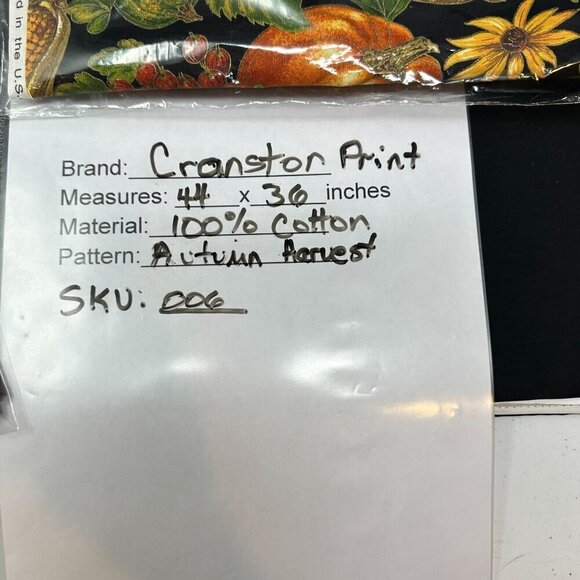 d in the U.S.
Brand: Cranston Print
Measures: 44 x 36 inches
Material: 100% Cotton
Pattern: Autumn Harvest
SKU: 006